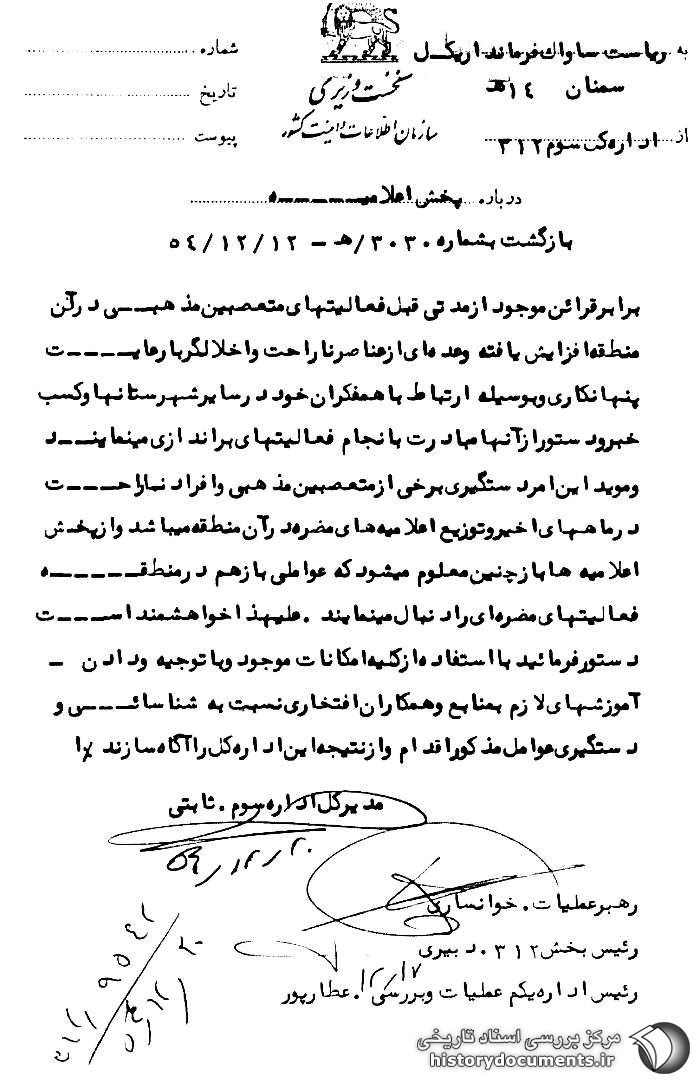 به ریاست ساواک فرمانداریکل
سمنان ۱۴هـ
از اداره کل سوم ۳۱۲
نخست وزیری
سازمان اطلاعات و امنیت کشور
شماره
تاریخ
پیوست
درباره پخش اعلامیــــــه
بازگشت بشماره ۳۰۳۰/هـ - ۵۴/۱۲/۱۲
برابر قرائن موجود از مدتی قبل فعالیتهای متعصبین مذهبـــی در آن
منطقه افزایش یافته و عده ای از عناصر ناراحت و اخلالگر با رعایــــت
پنهانکاری و بوسیله ارتباط با همفکران خود در سایر شهرستانها و کسب
خبر و دستور از آنها مبادرت بانجام فعالیتهای براندازی مینماینــد
و موید این امر دستگیری برخی از متعصبین مذهبی و افراد ناراحـــت
در ماههای اخیر و توزیع اعلامیه های مضره در آن منطقه میباشد و از پخش
اعلامیه ها باز چنین معلوم میشود که عواملی باز هم در منطقـــــه
فعالیتهای مضره ای را دنبال مینمایند . علیهذا خواهشمند اســـت
دستور فرمائید با استفاده از کلیه امکانات موجود و با توجیه و دادن -
آموزشهای لازم بمنابع و همکاران افتخاری نسبت به شناسائـــی و
دستگیری عوامل مذکور اقدام و از نتیجه این اداره کل را آگاه سازند
مدیر کل اداره سوم . ثابتی
۵۴/۱۲/۲۰
رهبر عملیات . خوانساری
رئیس بخش ۳۱۲ . دبیری
۱۲/۱۷
رئیس اداره یکم عملیات و بررسی . عطارپور
مرکز بررسی اسناد تاریخی
historydocuments.ir